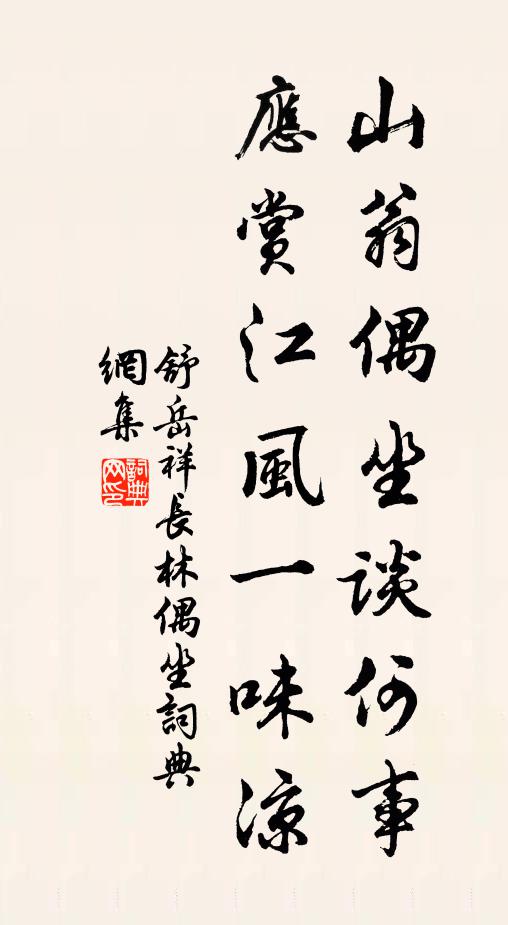 山翁偶坐談何事
應賞江風一味涼
舒岳祥長林偶坐詞典
網集
詞典
网印